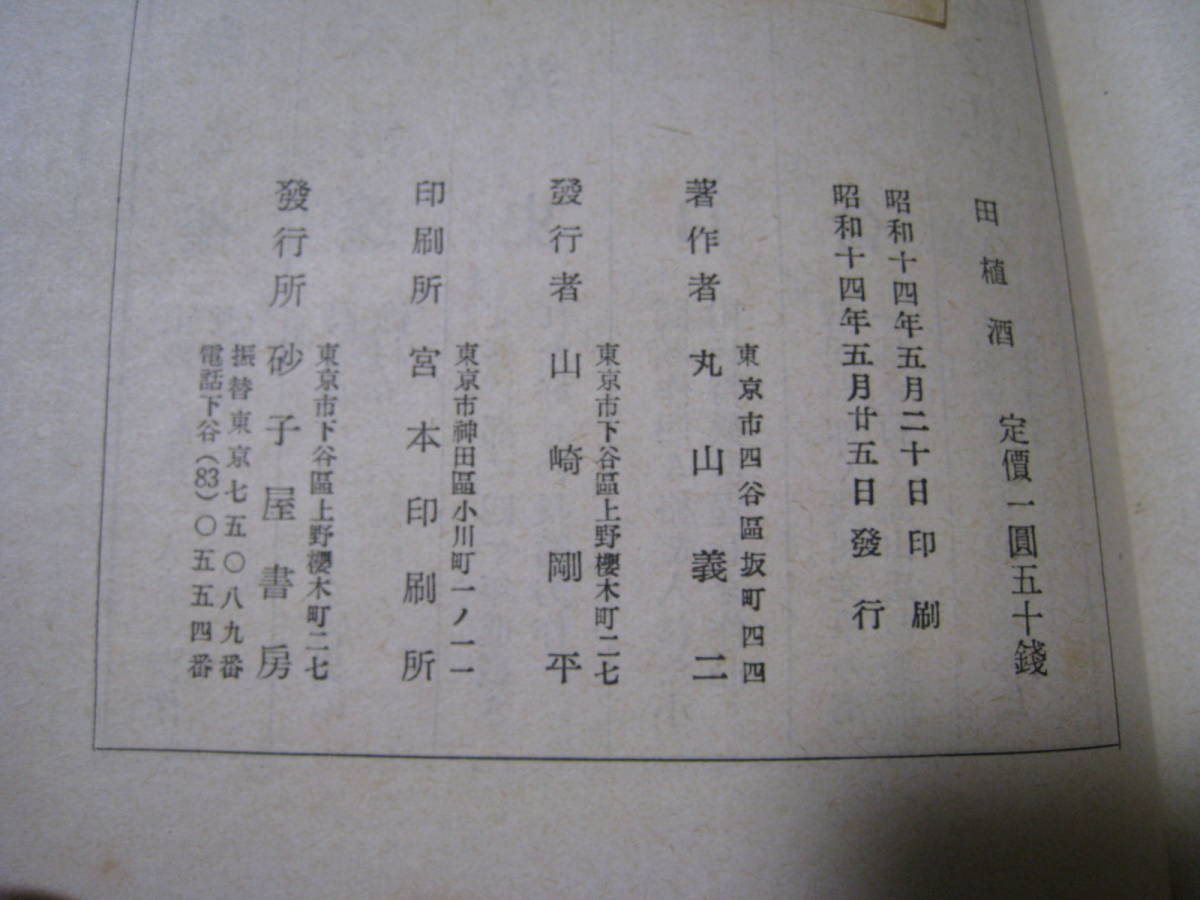 田植酒 定價一圓五十錢
昭和十四年五月二十日印刷
昭和十四年五月廿五日發行
東京市四谷區坂町四四
著作者 丸山義二
東京市下谷區上野櫻木町二七
發行者 山崎剛平
東京市神田區小川町一ノ一一
印刷所 宮本印刷所
東京市下谷區上野櫻木町二七
發行所 砂子屋書房
振替東京七五〇八九番
電話下谷(83)〇五五四番